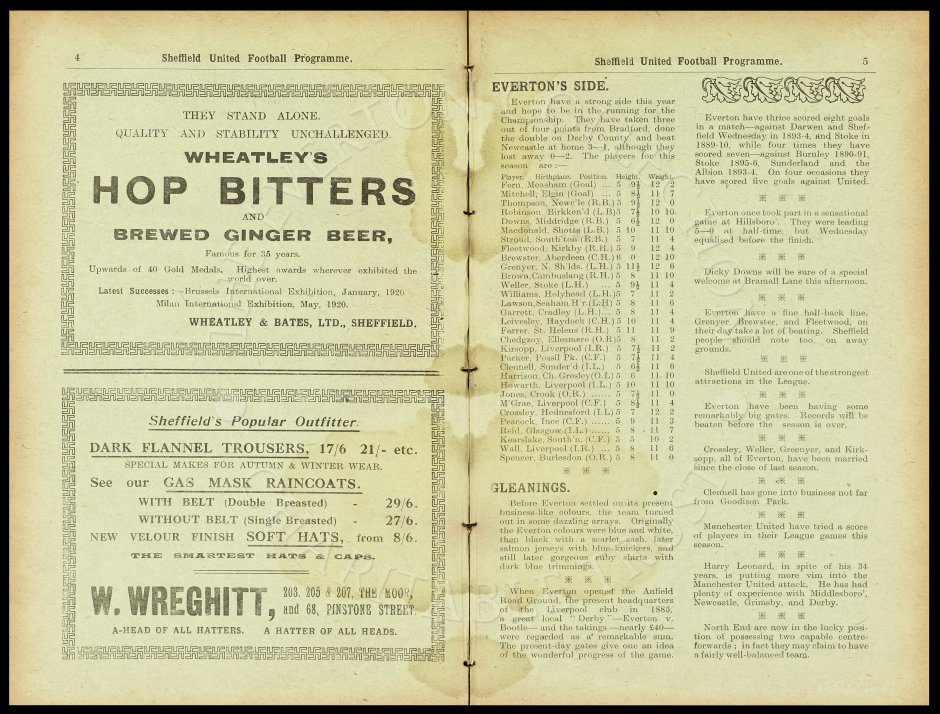 4
Sheffield United Football Programme.
THEY STAND ALONE.
QUALITY AND STABILITY UNCHALLENGED.
WHEATLEY'S
HOP BITTERS
AND
BREWED GINGER BEER,
Famous for 35 years.
Upwards of 40 Gold Medals. Highest awards wherever exhibited the
world over.
Latest Successes :—Brussels International Exhibition, January, 1920
Milan International Exhibition, May, 1920.
WHEATLEY & BATES, LTD., SHEFFIELD.
Sheffield's Popular Outfitter.
DARK FLANNEL TROUSERS, 17/6 21/- etc.
SPECIAL MAKES FOR AUTUMN & WINTER WEAR.
See our GAS MASK RAINCOATS.
WITH BELT (Double Breasted) - 29/6.
WITHOUT BELT (Single Breasted) - 27/6.
NEW VELOUR FINISH SOFT HATS, from 8/6.
THE SMARTEST HATS & CAPS.
W. WREGHITT,
203, 205 & 207, THE MOOR,
and 68, PINSTONE STREET.
A-HEAD OF ALL HATTERS. A HATTER OF ALL HEADS.
Sheffield United Football Programme.
5
EVERTON'S SIDE.
Everton have a strong side this year
and hope to be in the running for the
Championship. They have taken three
out of four points from Bradford, done
the double on Derby County, and beat
Newcastle at home 3—1, although they
lost away 0—2. The players for this
season are :—
Player. Birthplace. Position. Height. Weight.
Fern, Measham (Goal) ... 5 9½ 12 2
Mitchell, Elgin (Goal) ... 5 8½ 11 7
Thompson, Newc'le (R.B.) 5 9½ 12 0
Robinson, Birkken'd (L.B) 5 7½ 10 10
Downs, Middridge (R.B.) 5 6½ 12 0
Macdonald, Shotts (L.B.) 5 10 11 10
Stroud, South'ton (R.B.) 5 7 11 4
Fleetwood, Kirkby (R.H.) 5 9 12 4
Brewster, Aberdeen (C.H.) 6 0 12 10
Grenyer, N. Sh'lds. (L.H.) 5 11½ 12 6
Brown, Cambuslang (R.H.) 5 8 11 10
Weller, Stoke (L.H.) ... 5 9½ 11 4
Williams, Holyhead (L.H.) 5 7 11 2
Lawson, Seaham H'r. (L.H) 5 8 11 6
Garrett, Cradley (L.H.) ... 5 8 11 4
Leivesley, Haydock (C.H.) 5 10 11 4
Farrer, St. Helens (R.H.) 5 11 11 9
Chedgzoy, Ellesmere (O.R) 5 8 11 2
Kirsopp, Liverpool (I.R.) 5 7½ 11 2
Parker, Possil Pk. (C.F.) 5 7½ 11 4
Clennell, Sunder'd (I.L.) 5 6½ 11 6
Harrison, Ch. Gresley (O.L) 5 6 11 10
Howarth, Liverpool (I.L.) 5 10 11 10
Jones, Crook (O.R.) ...... 5 7½ 11 0
M'Grae, Liverpool (C.F.) 5 8½ 11 4
Crossley, Hednesford (I.L) 5 7 12 2
Peacock, Ince (C.F.) ...... 5 9 11 3
Reid, Glasgow (I.L.) ...... 5 8 11 7
Kearslake, South'n. (C.F.) 5 5 10 2
Wall, Liverpool (I.R.) ... 5 8 11 6
Spencer, Burlesdon (O.R.) 5 8 11 0
GLEANINGS.
Before Everton settled on its present
business-like colours, the team turned
out in some dazzling arrays. Originally
the Everton colours were blue and white,
then black with a scarlet sash, later
salmon jerseys with blue knickers, and
still later gorgeous ruby shirts with
dark blue trimmings.
When Everton opened the Anfield
Road Ground, the present headquarters
of the Liverpool club in 1885,
a great local "Derby"—Everton v.
Bootle—and the takings—nearly £40—
were regarded as a remarkable sum.
The present-day gates give one an idea
of the wonderful progress of the game.
Everton have thrice scored eight goals
in a match—against Darwen and Shef-
field Wednesday in 1893-4, and Stoke in
1889-10, while four times they have
scored seven—against Burnley 1890-91,
Stoke 1895-6, Sunderland and the
Albion 1893-4. On four occasions they
have scored five goals against United.
Everton once took part in a sensational
game at Hillsboro'. They were leading
5—0 at half-time, but Wednesday
equalised before the finish.
Dicky Downs will be sure of a special
welcome at Bramall Lane this afternoon.
Everton have a fine half-back line.
Grenyer, Brewster, and Fleetwood, on
their day take a lot of beating. Sheffield
people should note too, on away
grounds.
Sheffield United are one of the strongest
attractions in the League.
Everton have been having some
remarkably big gates. Records will be
beaten before the season is over.
Crossley, Weller, Greenyer, and Kirk-
sopp, all of Everton, have been married
since the close of last season.
Clennell has gone into business not far
from Goodison Park.
Manchester United have tried a score
of players in their League games this
season.
Harry Leonard, in spite of his 34
years, is putting more vim into the
Manchester United attack. He has had
plenty of experience with Middlesboro',
Newcastle, Grimsby, and Derby.
North End are now in the lucky posi-
tion of possessing two capable centre-
forwards ; in fact they may claim to have
a fairly well-balanced team.